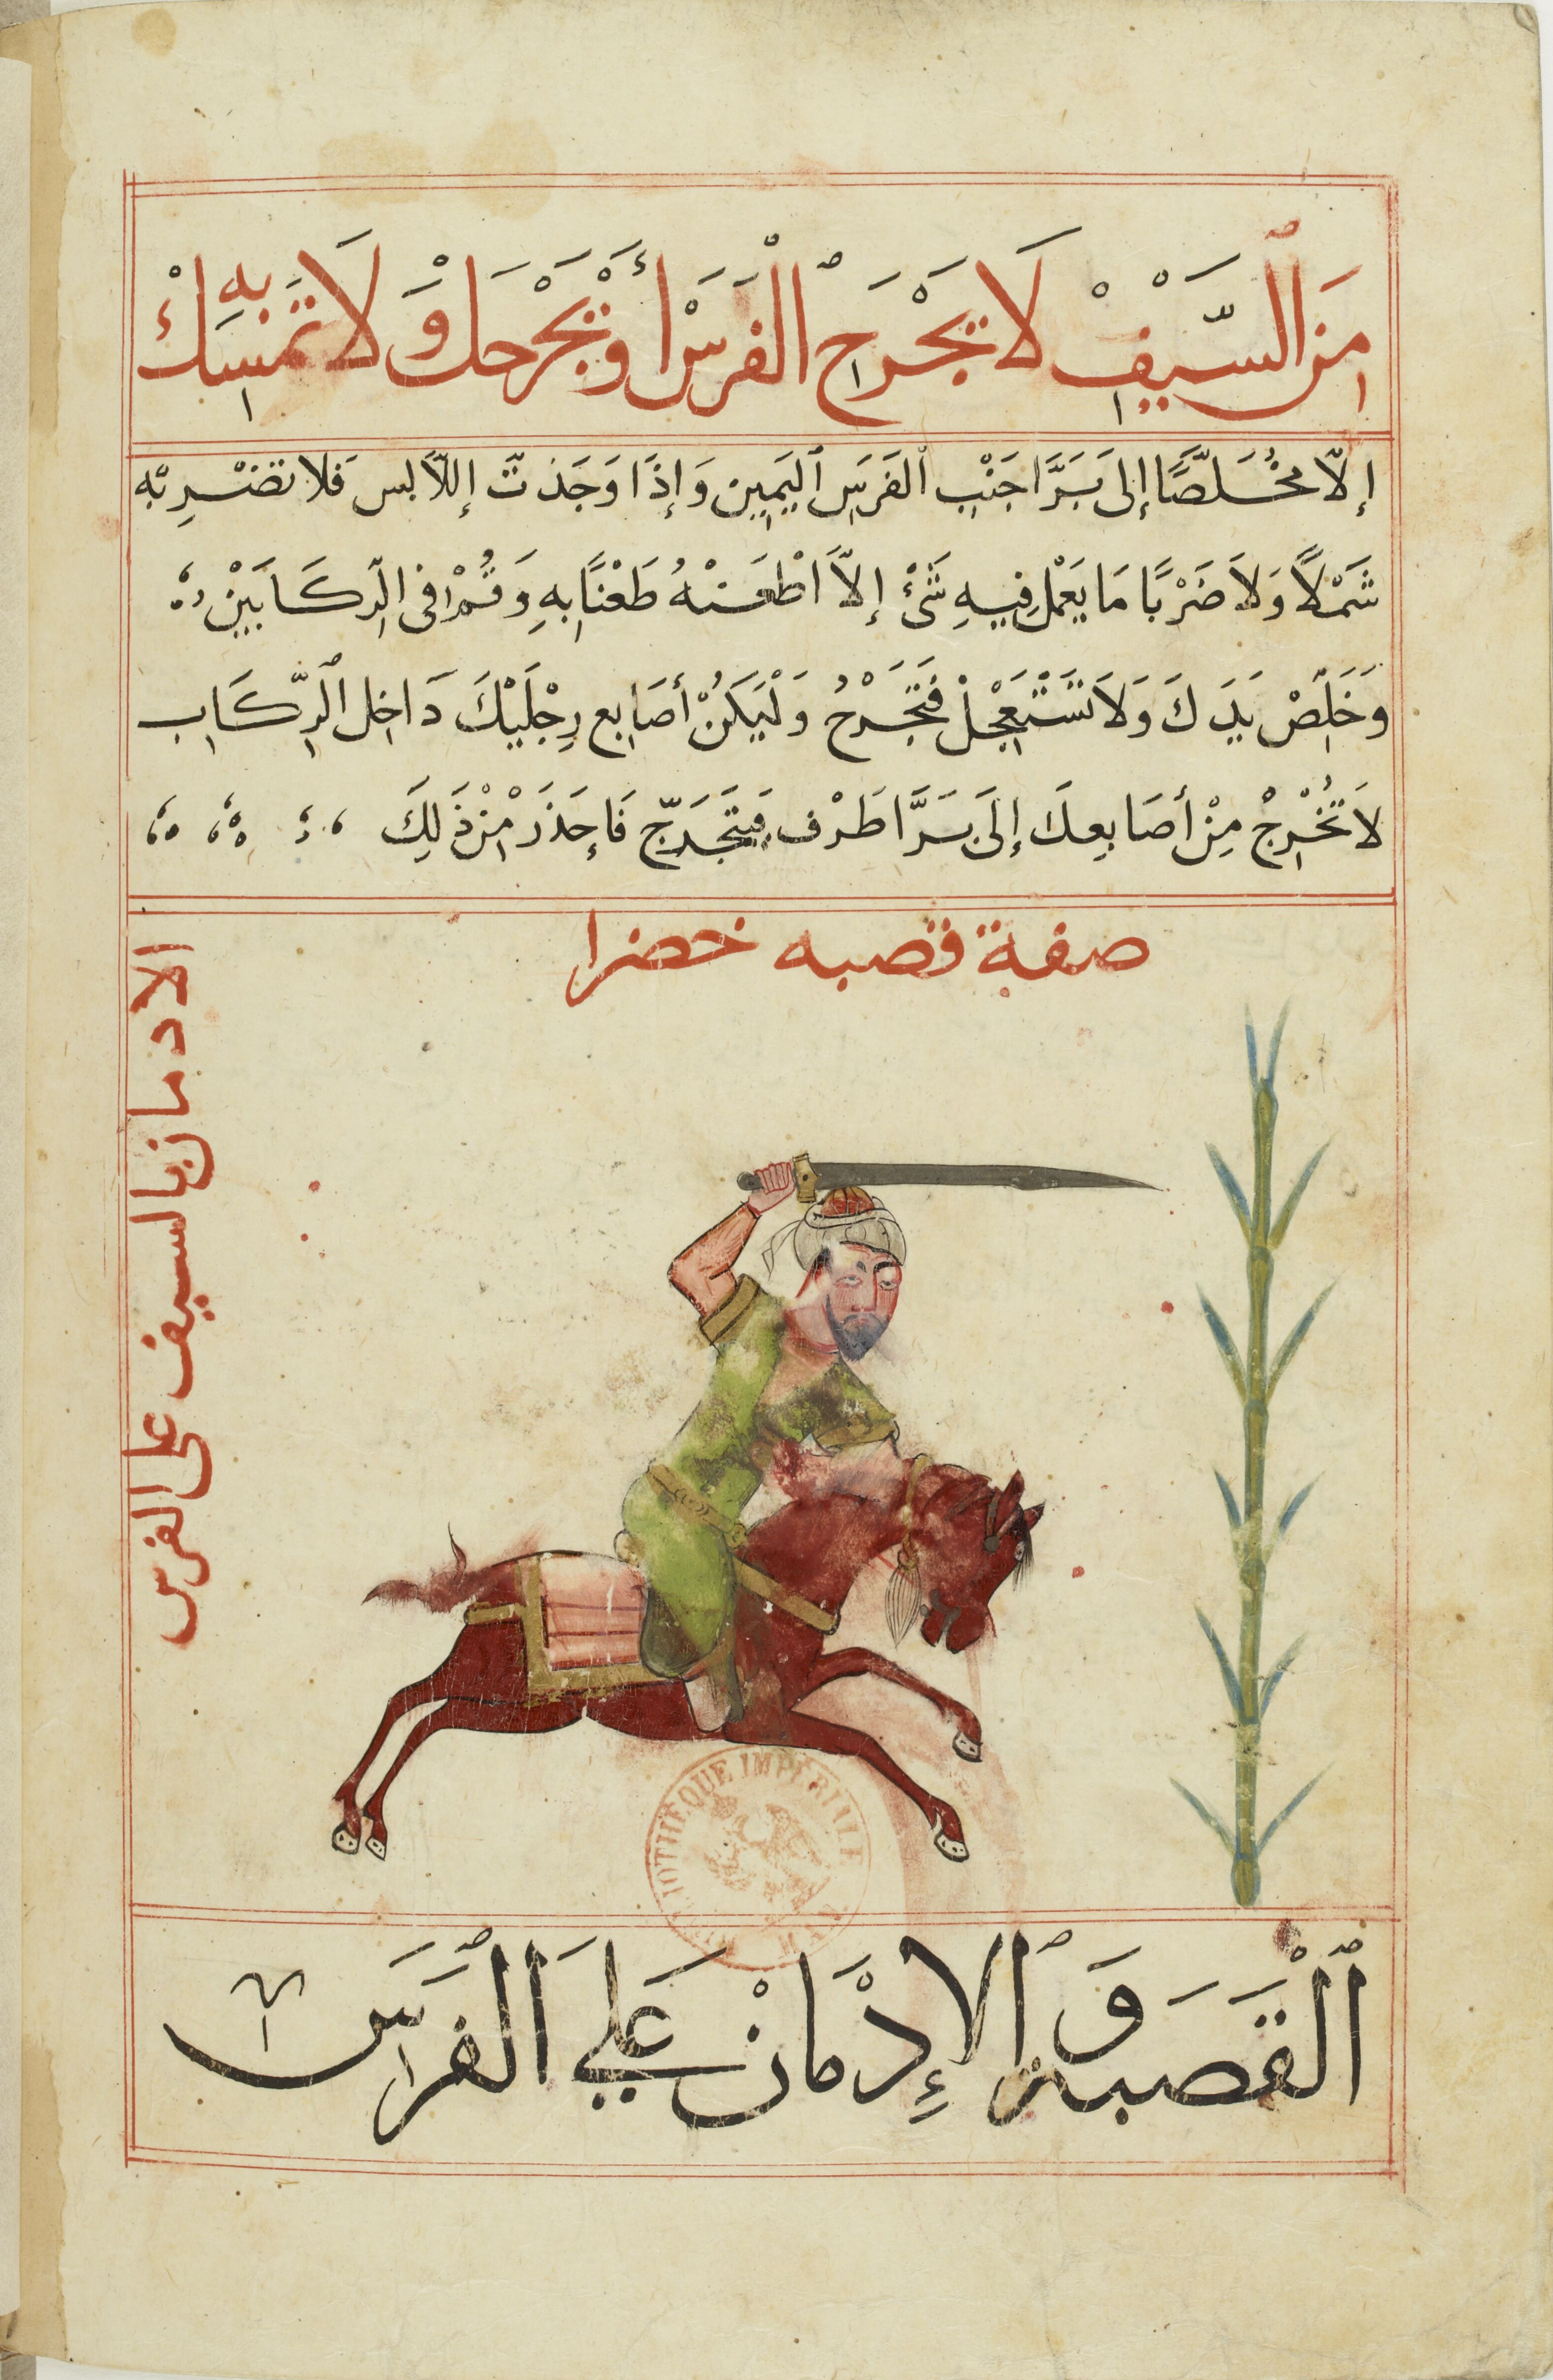 مِنَ ٱلسَّيْفِ لَا يَجْرَحِ ٱلْفَرَسْ أَوْ يَجْرَحَكْ وَلَا تَمْسِكْ بِهِ
إِلَّا مُخَلَّصًا إِلَى بَرَّا جَنْبِ ٱلفَرَسِ ٱليَمِينِ وَإِذَا وَجَدْتَ إِللَّابس فَلا تضْرِبْهِ
شَمْلًا وَلاَ ضَرْبًا مَا يَعْمَل فِيهِ شَىْءْ إِلاَّ اطْعَنْهُ طَعْنًا بِهِ وَقُمْ فِى الرِّكَابَيْنِ
وَخَلِّصْ يَدَكَ وَلاَ تَسْتَعْجِلْ فَتَجْرَحُ وَلْيَكُنْ أَصَابِع رِجْلَيْكَ دَاخِل ٱلرِّكَابِ
لاَ تُخْرِجْ مِنْ أَصَابِعِكَ إِلَى بَرَّا طَرْف فَيَتَجَرَّح فَإِحْذَرْ مِنْ ذَلِكَ
صفة قصبه خضرا
الادمان بالسيف على الفرس
BIBLIOTHEQUE IMPERIALE
ٱلْقَصَبَة وَٱلإِدْمَانْ عَلَي ٱلفَرَسِ